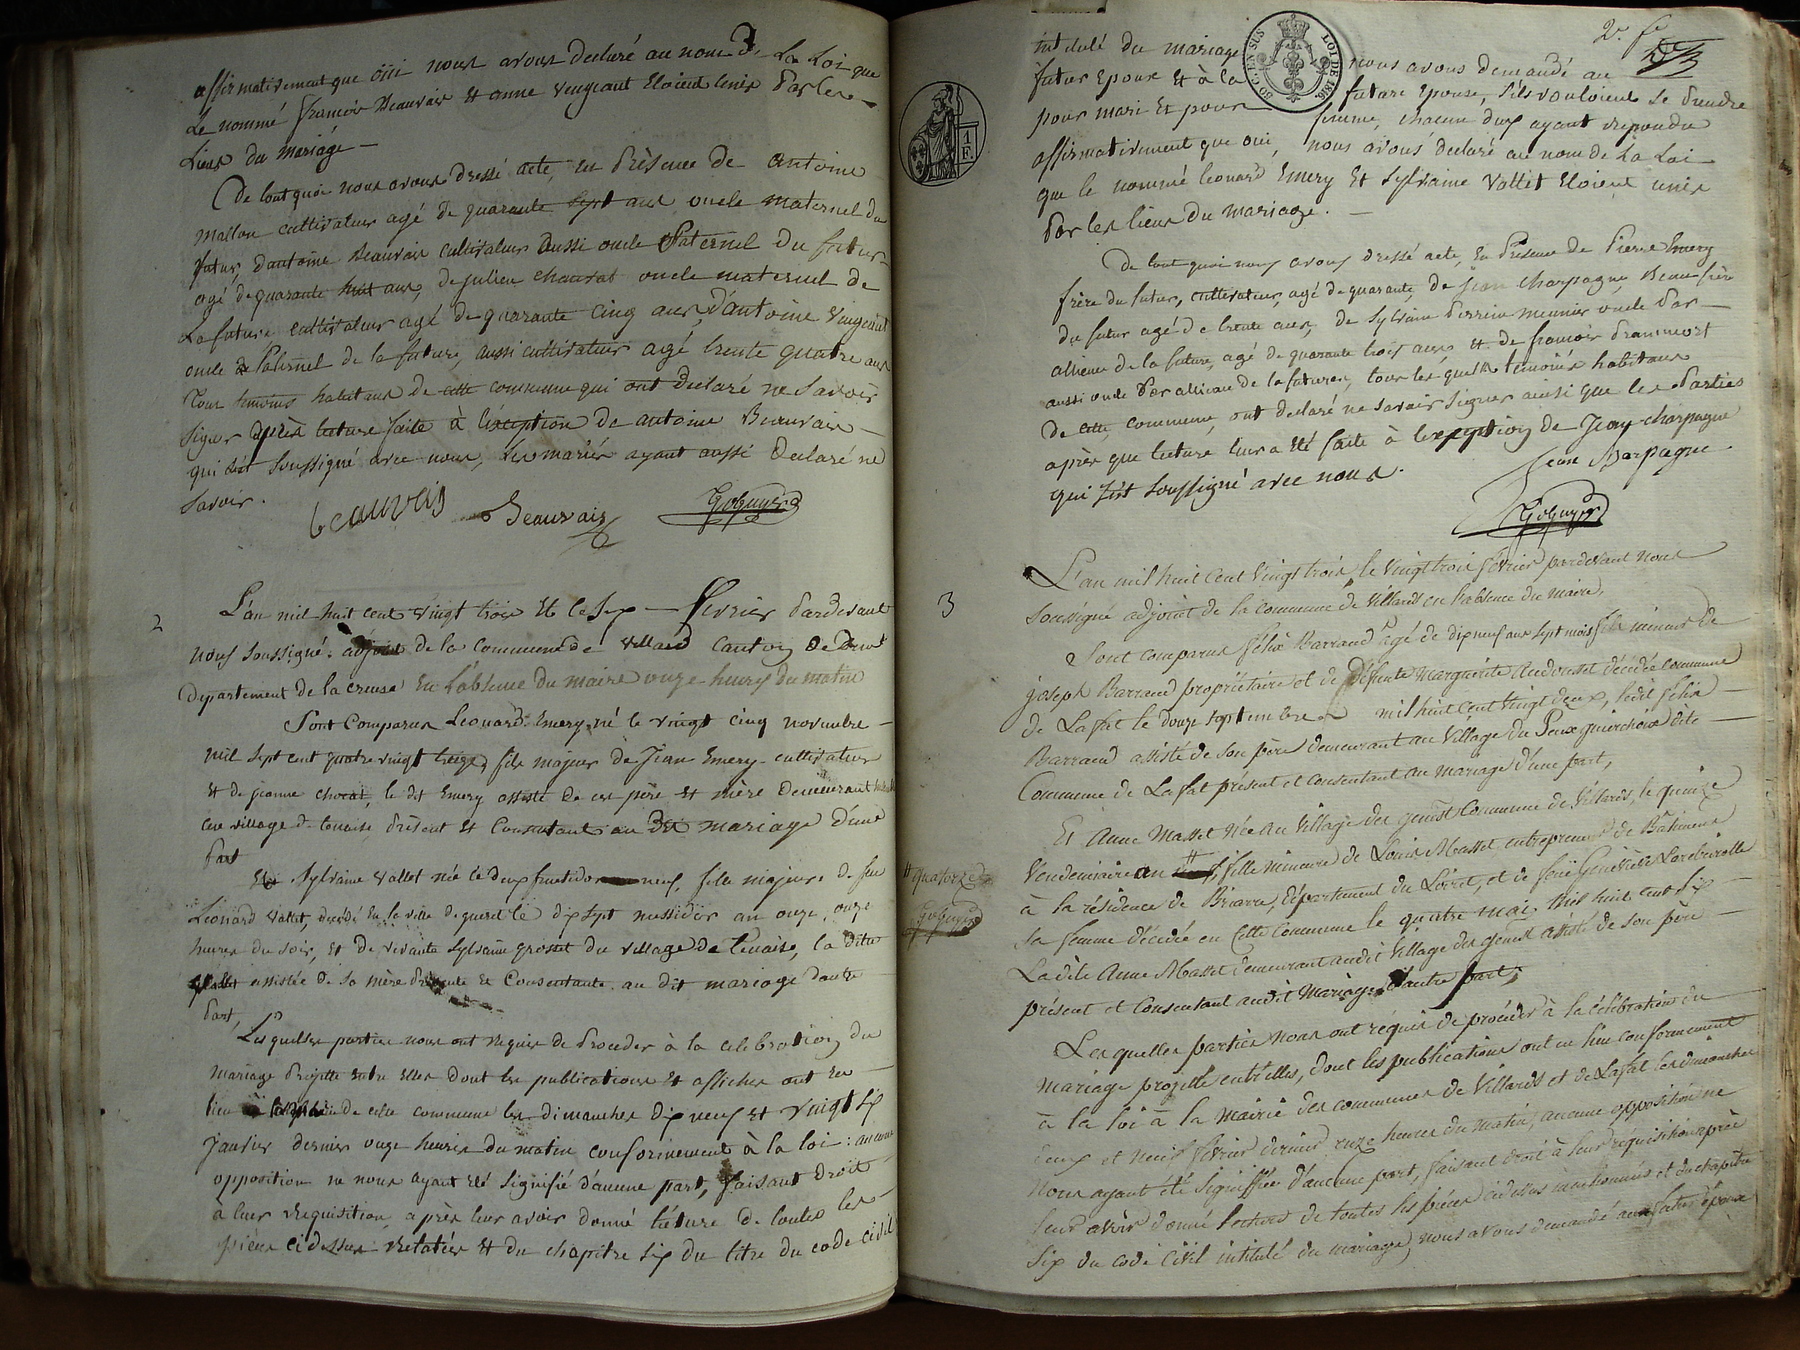 affirmativement que oui nous avons declaré au nom de La Loi que
Le nommé francois Beauvais Et anne Vingeant Etoient unis Par les
Liens du mariage —
De tout quoi nous avons dressé acte, en Présence de antoine
Mallon cultivateur agé de quarante sept ans oncle maternel du
futur, d'antoine Beauvais cultivateur aussi oncle Paternel du futur
agé de quarante huit ans, de julien chauvat oncle maternel de
La future, cultivateur agé de quarante cinq ans, d'antoine Vingeant
oncle Paternel de la future, aussi cultivateur agé trente quatre ans
Tous temoins habitans de cette commune qui ont declaré ne savoir
signer après lecture faite à l'exeption de antoine Beauvais —
qui s'est soussigné avec nous, Les mariés ayant aussi declaré ne
savoir.
beauvais Beauvais Goguyer
2
L'an mil huit cent vingt trois Et le six — fevrier Pardevant
nous soussigné adjoint de la commune de Villard canton de Dun
departement de la creuse En l'absence du maire onze heures du matin
Sont Comparus Leonard Emery né le vingt cinq novembre —
mil sept cent quatre vingt treize, fils majeur de Jean Emery cultivateur
Et de jeanne chocat, le dit Emery assisté de ces père Et mère Demeurant
au village de tenaise Présent Et Consentant au dit mariage d'une
Part
Et Sylvaine Vallet née le dix fructidor neuf, fille majeure de feu
Léonard Vallet, decédé En la ville de queret le dix sept messidor an onze, onze
heures du soir, Et de vivante Sylvaine grosset du village de tenaise, la dite
Vallet assistée de sa mère Présente Et Consentante au dit mariage d'autre
Part,
Les quelles parties nous ont requis de Proceder à la celebration du
mariage Projetté entre elles dont les publications Et affiches ont eu
lieu de cette commune les dimanches dix neuf Et vingt six
Janvier dernier onze heures du matin conformement à la loi : aucune
opposition ne nous ayant eté signifié d'aucune part, faisant Droit
a leur requisition après leur avoir donné lecture de toutes les
pièces cidessus relatées Et du chapitre six du titre du code civil
2e. fe
50 C. EN SUS LOI DE 1816
1 F.
intitulé du mariage nous avons demandé au
futur Epoux Et à la future Epouse, s'ils vouloient se Prendre
pour mari Et pour femme, chacun d'eux ayant repondu
affirmativement que oui, nous avons declaré au nom de La Loi
que le nommé leonard Emery Et Sylvaine Vallet Etoient unis
Par les liens du Mariage. —
De tout quoi nous avons dressé acte, En Présence de Pierre Emery
frère du futur, cultivateur, agé de quarante, de jean charpagne Beau frère
du futur agé de trente ans, de Sylvain Perrin meunier oncle Par —
alliance de la future, agé de quarante trois ans Et de francois
aussi oncle Par alliance de la future, tous les quels temoins habitans
de cette commune, ont declaré ne savoir signer ainsi que les Parties
après que lecture leur a Eté faite à l'exeption de Jean charpagne
qui s'est soussigné avec nous.
Jean charpagne
Goguyer
3
L'an mil huit cent Vingt trois, le Vingt trois février pardevant nous
Soussigné adjoint de la commune de Villards en l'absence du maire,
Sont comparus félix Barraud agé de dix neuf ans sept mois fils mineur de
joseph Barraud propriétaire et de défunte Marguerite audousset décédée commune
de Lafat le douze septembre mil huit cent vingt deux, ledit félix —
Barraud assisté de son père demeurant au Village du Peux guirchoix dite —
Commune de Lafat présent et consentant au mariage d'une part,
Et Anne Masset née au Village des genest Commune de Villards, le quinze
Vendemiaire an # fille mineure de Louis Masset entrepreneur de Bâtimens
# quatorze
Goguyer
à la résidence de Briarre, département du Loiret, et de feue Geneviève
sa femme décédée en cette Commune le quatre mai mil huit cent six —
La dite Anne Masset demeurant audit Village des genest assisté de son père —
présent et Consentant audit Mariage d'autre part,
Les quelles parties nous ont réquis de procéder à la célébration du
mariage projetté entr'elles, dont les publications ont eu lieu conformement
à la loi à la mairie des communes de Villards et de Lafat les dimanches
deux et neuf février dernier onze heures du matin, aucune opposition ne
Nous ayant été signiffiée d'aucune part, faisant droit à leur requisition après
leur avoir donné lecture de toutes les pièces cidessus mentionnées et du chapitre
Six du code Civil intitulé du mariage, nous avons demandé aux futur époux